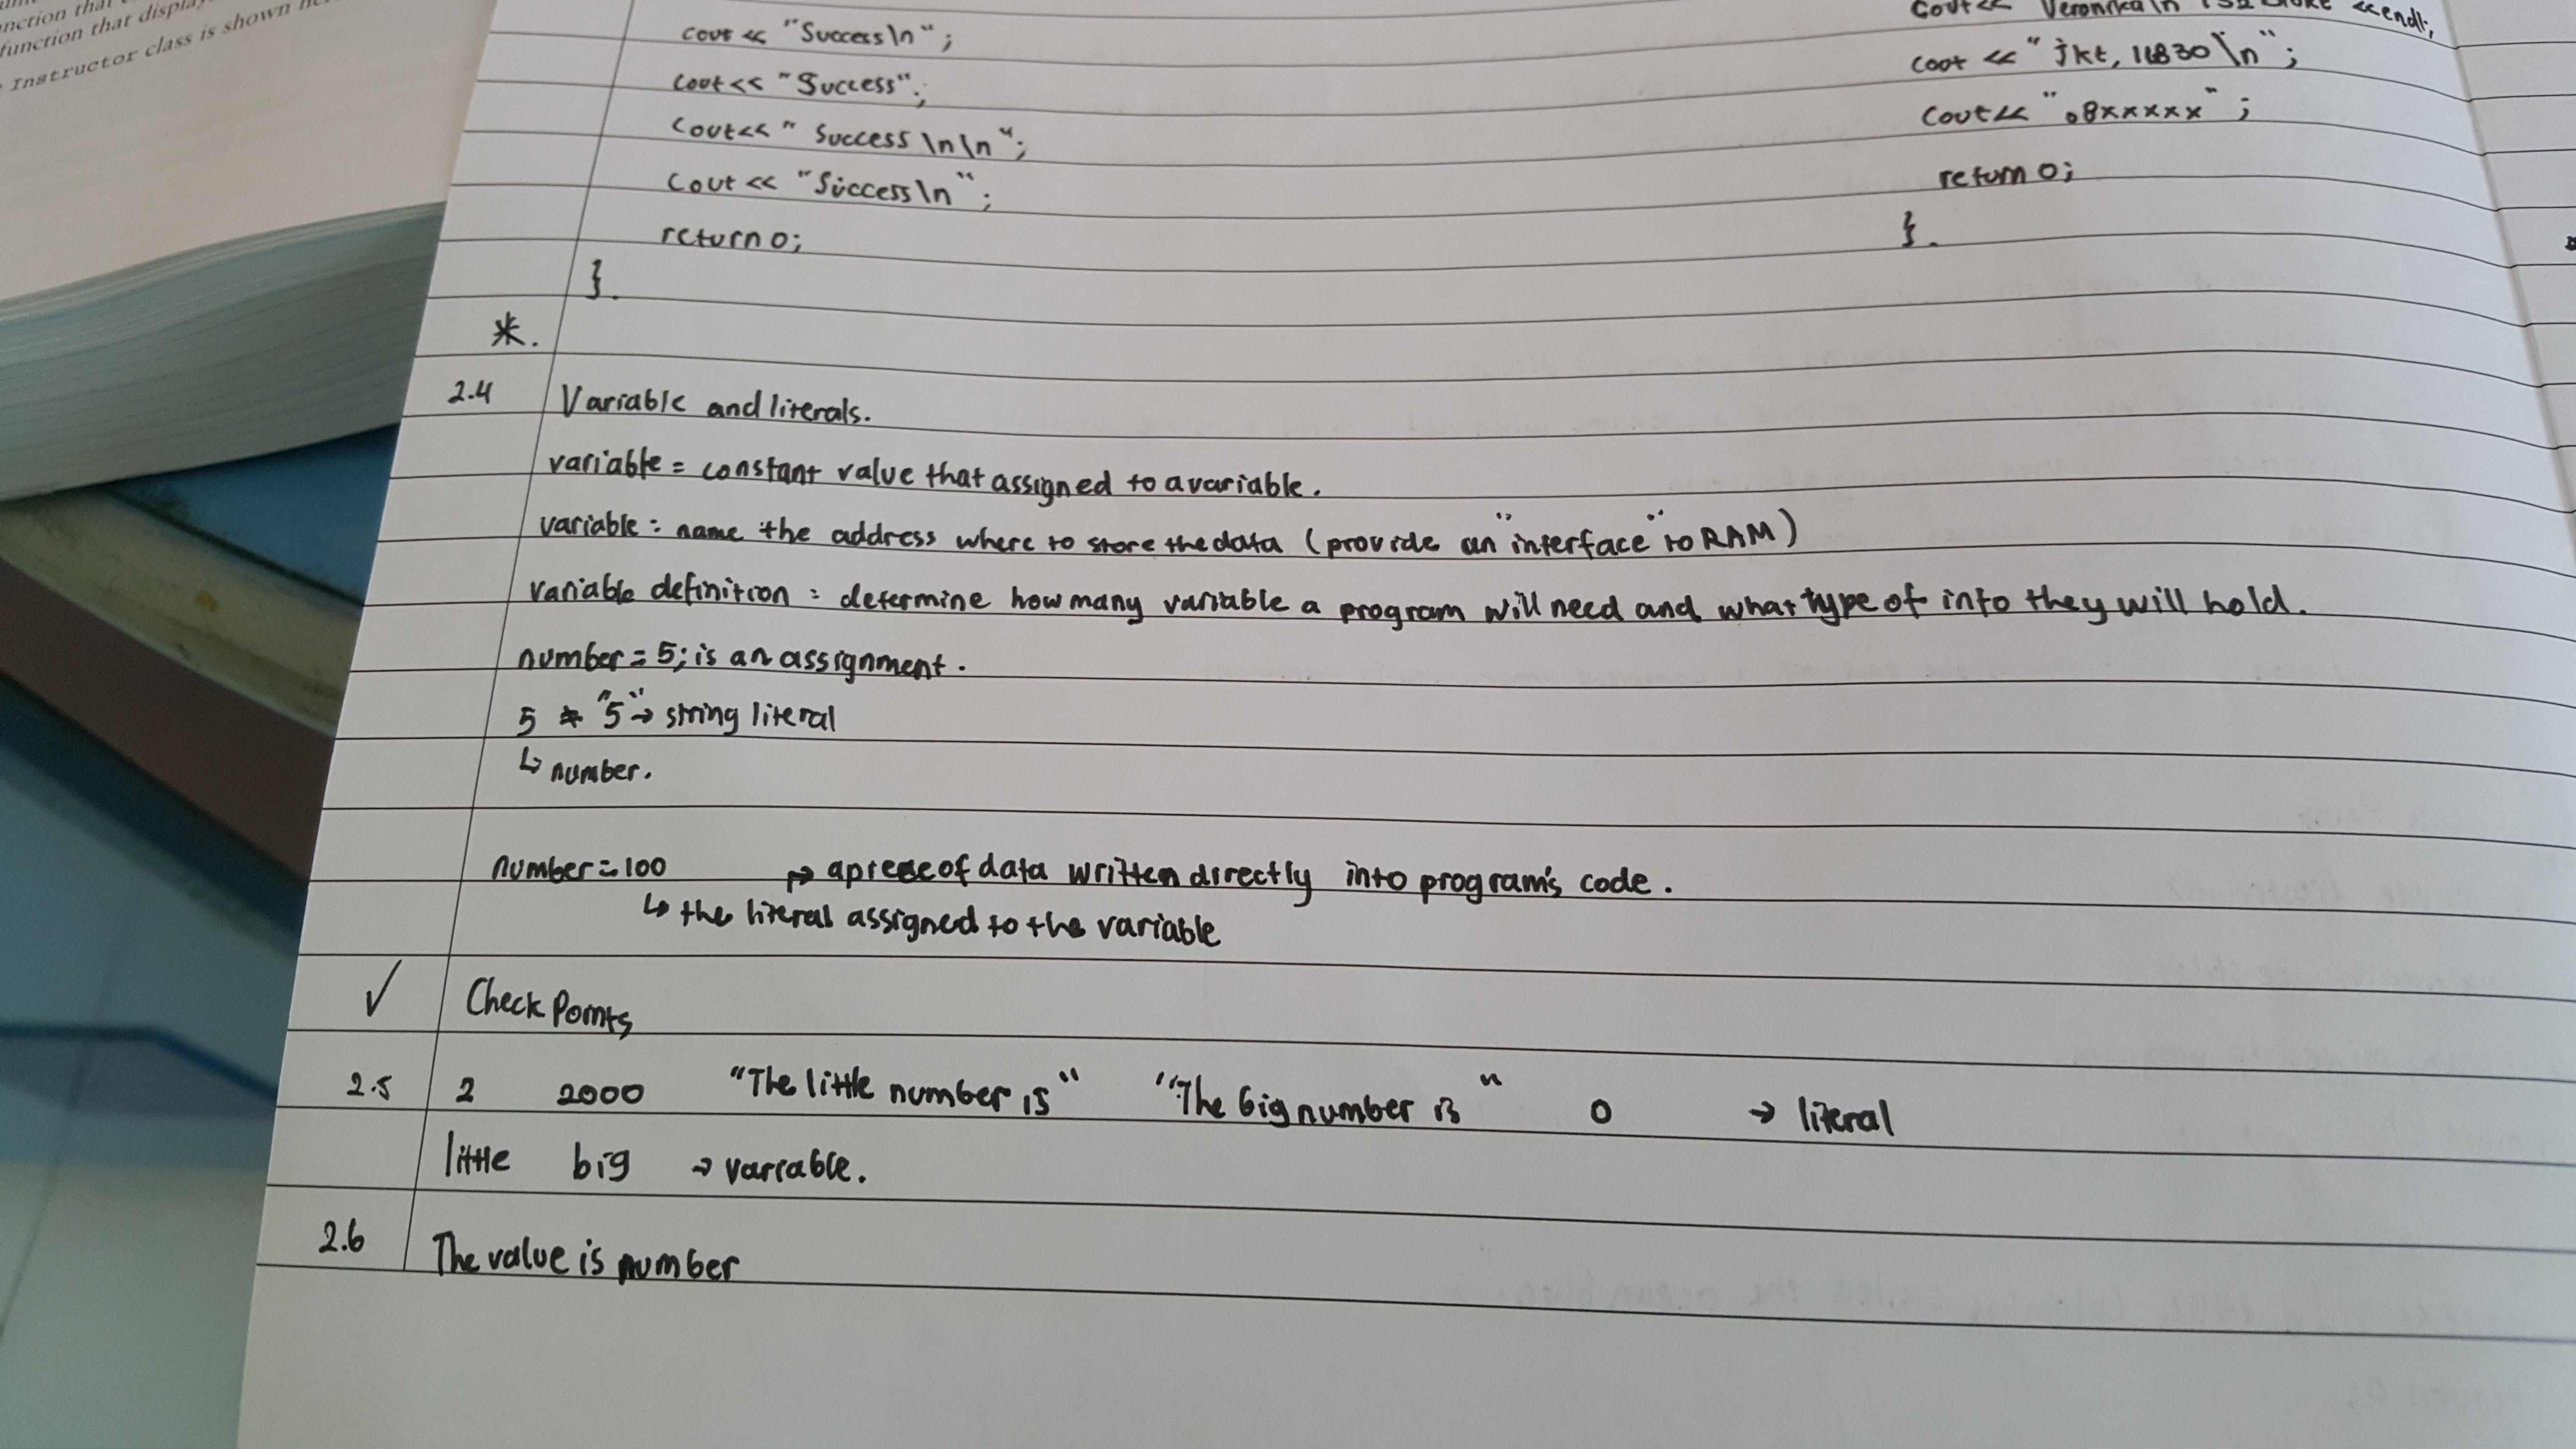 nction that
function that display
Instructor class is shown
cout << "Success\n";
cout << "Success";
cout << " Success \n\n";
cout << "Success\n";
return 0;
}.
<< endl;
cout << " jkt, 11830 \n";
cout << " 08xxxxx" ;
return 0;
}.
*.
2.4 Variable and literals.
variable = constant value that assigned to a variable.
variable = name the address where to store the data (provide an "interface" to RAM)
variable definition = determine how many variable a program will need and what type of info they will hold.
number = 5; is an assignment.
5 ≠ "5" → string literal
↳ number.
number = 100 → a piece of data written directly into program's code.
↳ the literal assigned to the variable
✓ Check Points
2.5 2 2000 "The little number is" "The big number is" 0 → literal
little big → variable.
2.6 The value is number